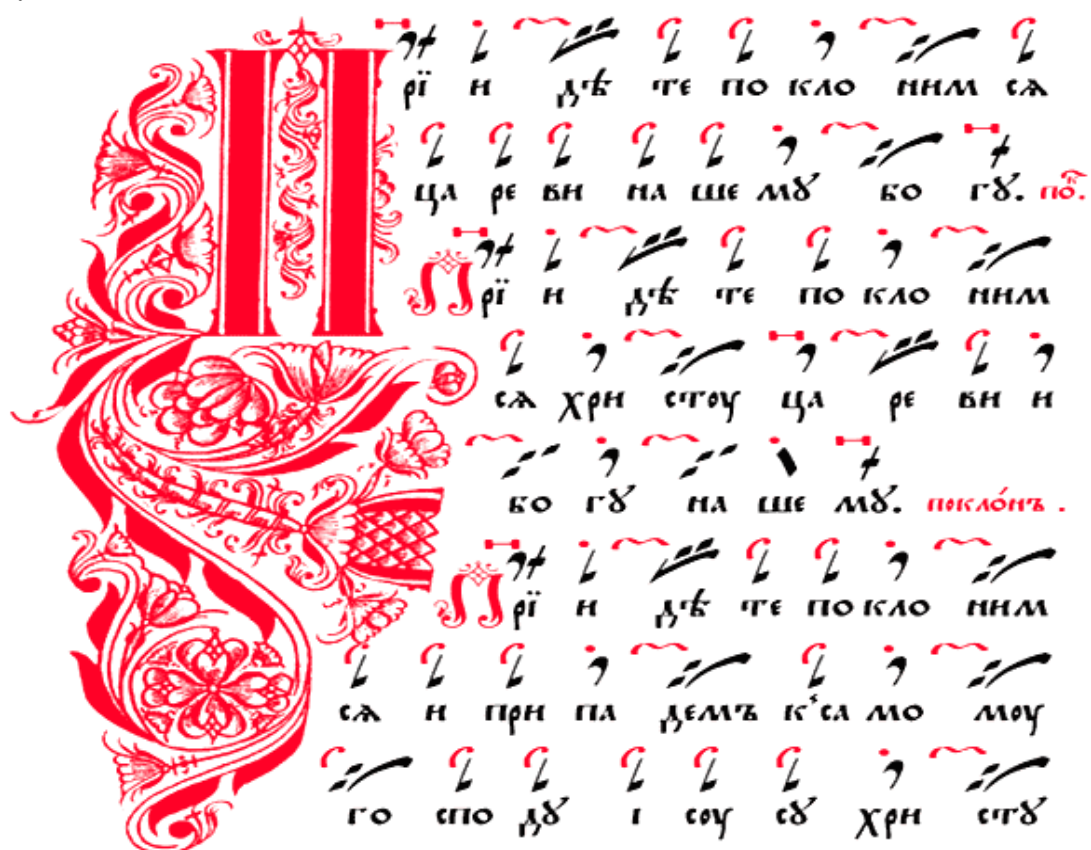 Прї и дѣ те по кло ним сѧ
ца ре ви на ше мꙋ бо гꙋ. по́к.
Прї и дѣ те по кло ним
сѧ хри стоу ца ре ви и
бо гꙋ на ше мꙋ. покло́нъ .
Прї и дѣ те по кло ним
сѧ и при па демъ к'са мо моу
го спо дꙋ і соу сꙋ хри стꙋ